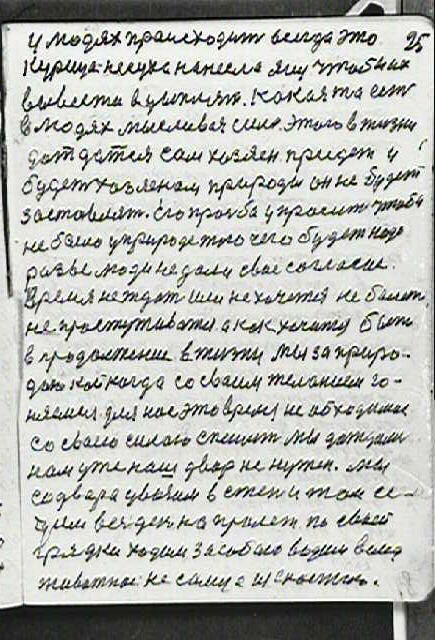 у людях происходит всегда это 25
Курица несуха нанесла яиц чтоб их
вывести в цыплят. Какая та есть
в людях мысливая сила. Этого в жизни
дождатся сам хозяен придет и
будет хозяеном природы он не будет
заставлят. Его прозба упросит чтобы
не было у природе того чего будет надо
разве люди не дали свае согласие.
Время не ждет или не хочется не болет
не простуживатся а как хочится быть
в продолжение в жизни мы за приро-
дою кой когда со своим желанием го-
няемся для нас это время не обходимое
со своею силою спешит мы дождали
нам уже наш двор не нужен. мы
со двора увозим в степ и там се-
дим вес ден на пролет по своей
грядки ходим за собою водим
животное не самце и сностию.